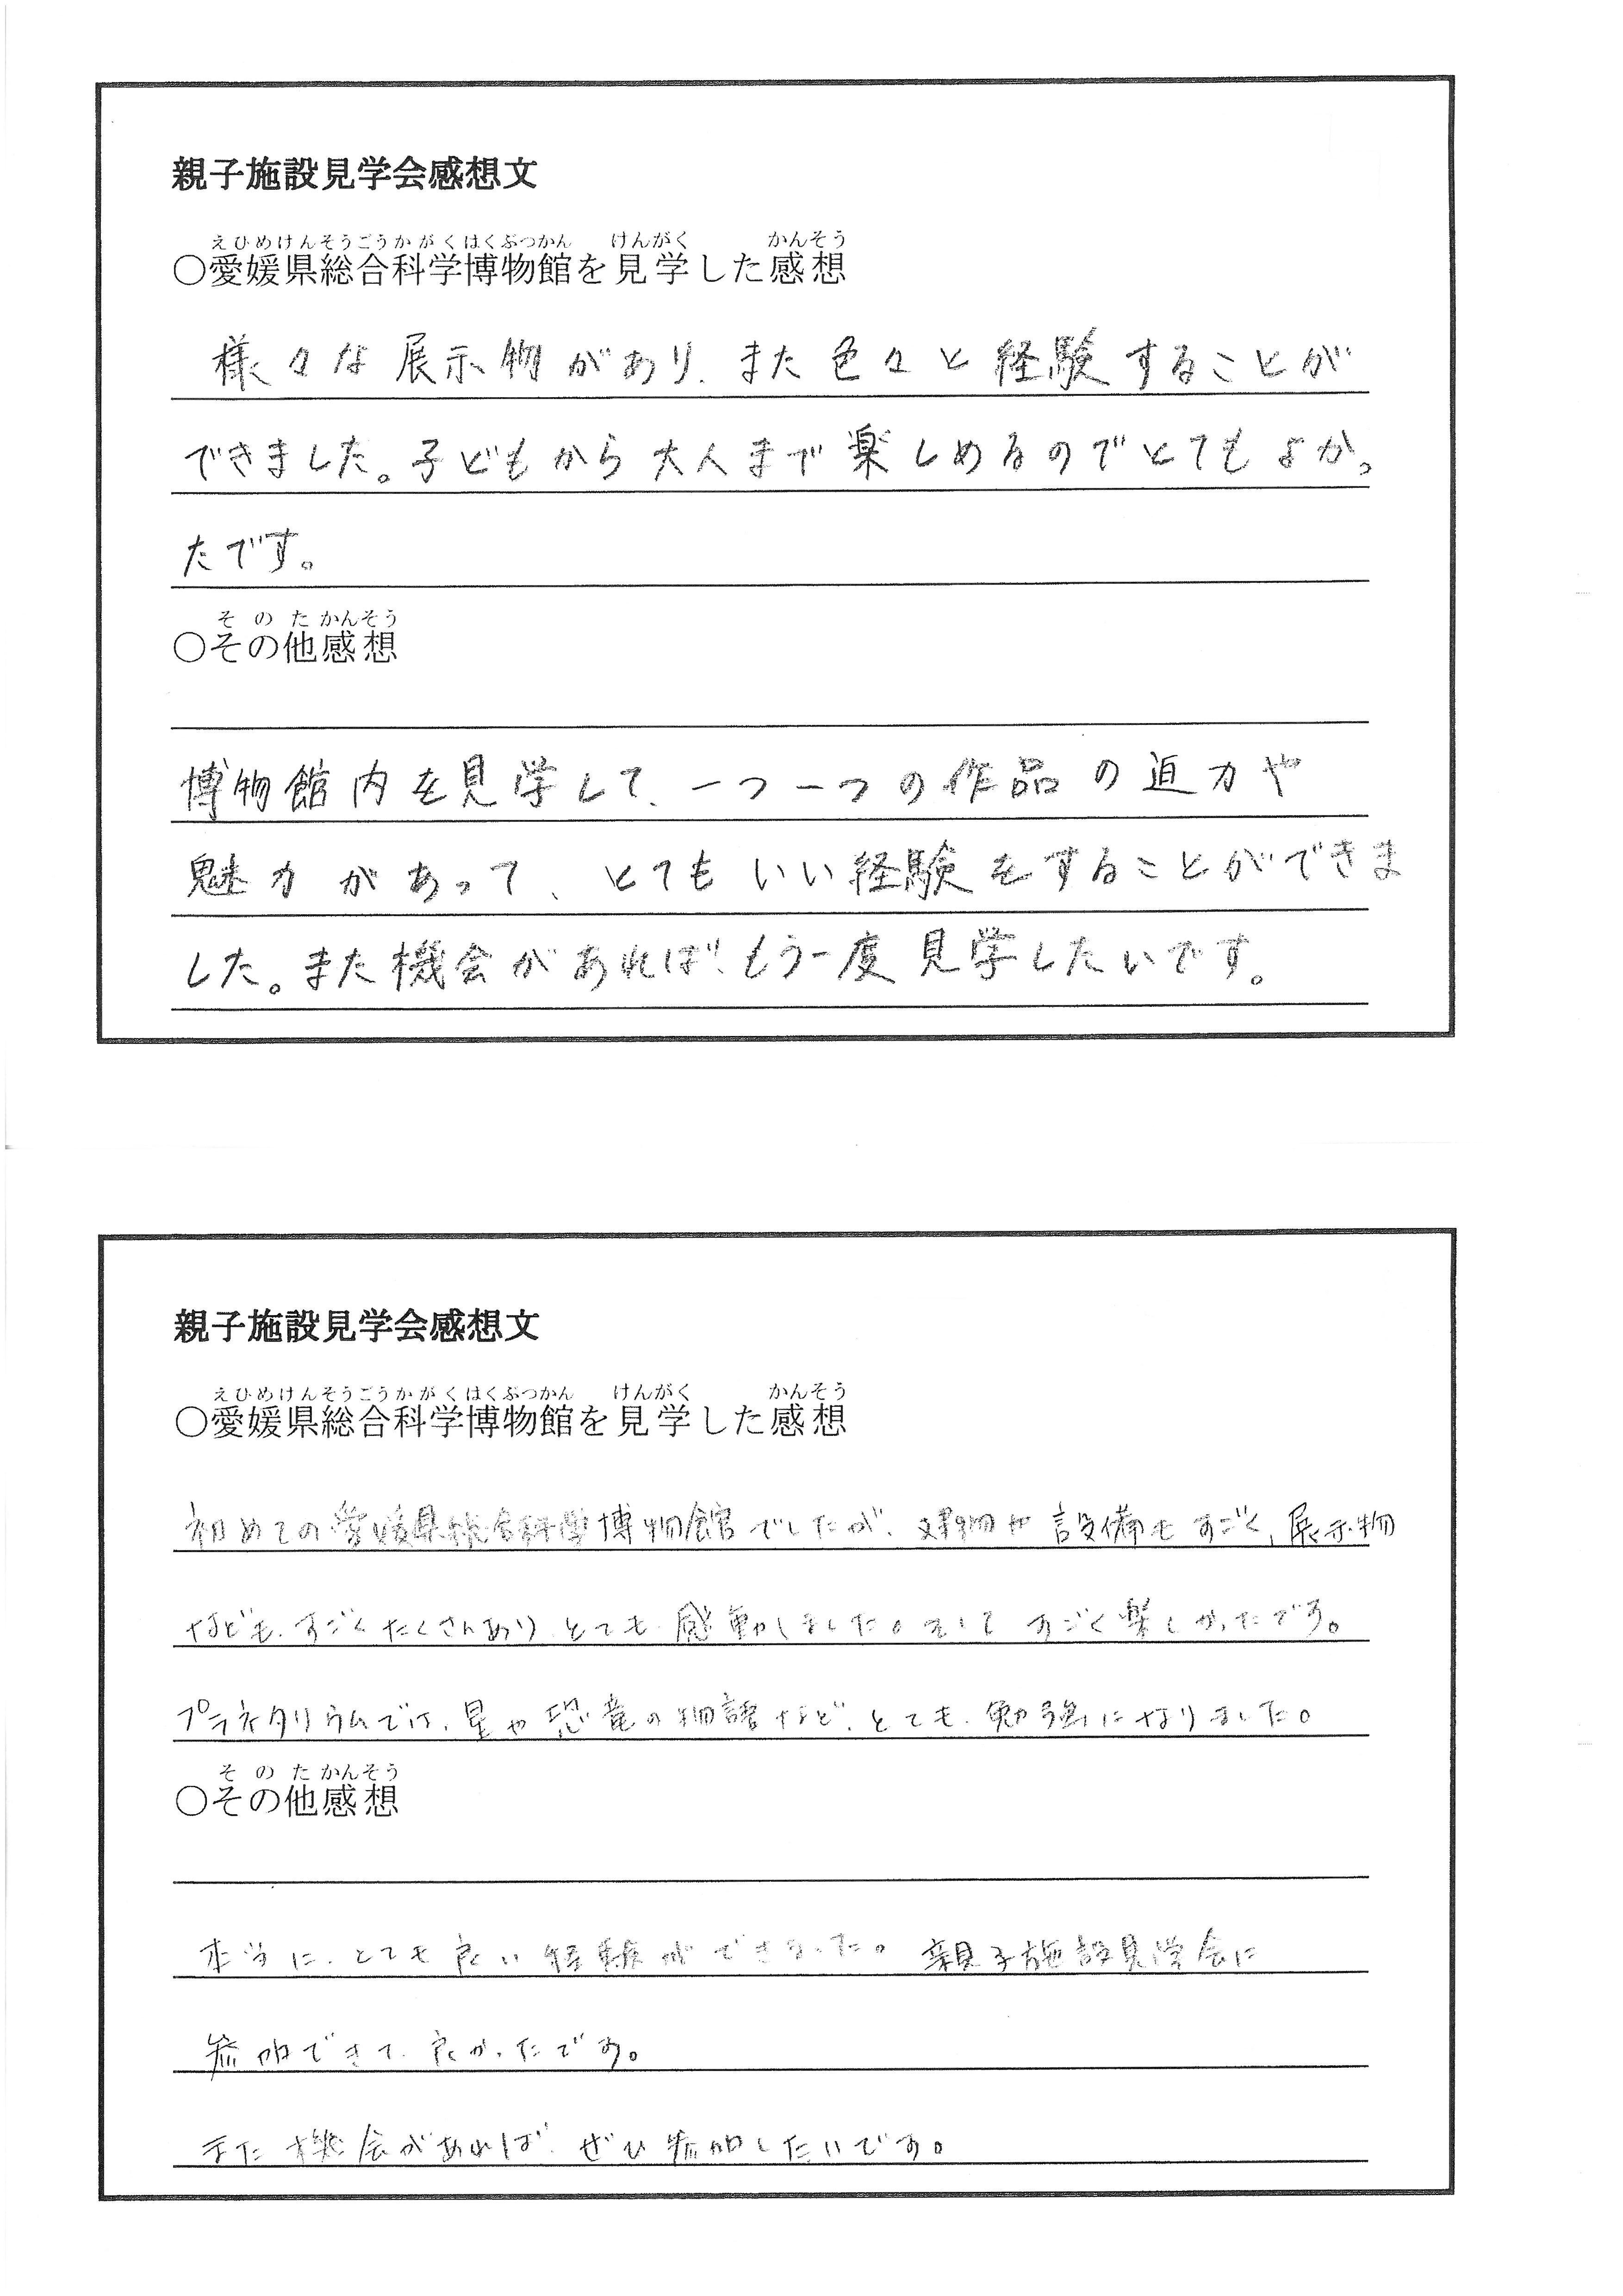 親子施設見学会感想文
えひめけんそうごうかがくはくぶつかん けんがく かんそう
○愛媛県総合科学博物館を見学した感想
様々な展示物があり、また色々と経験することが
できました。子どもから大人まで楽しめるのでとてもよかっ
たです。
そのたかんそう
○その他感想
博物館内を見学して、一つ一つの作品の迫力や
魅力があって、とてもいい経験をすることができま
した。また機会があれば、もう一度見学したいです。
親子施設見学会感想文
えひめけんそうごうかがくはくぶつかん けんがく かんそう
○愛媛県総合科学博物館を見学した感想
初めての愛媛県総合科学博物館でしたが、建物や設備もすごく、展示物
なども、すごくたくさんあり、とても感動しました。そしてすごく楽しかったです。
プラネタリウムでは、星や恐竜の物語など、とても勉強になりました。
そのたかんそう
○その他感想
本当に、とても良い経験ができました。親子施設見学会に
参加できて、良かったです。
また機会があれば、ぜひ参加したいです。